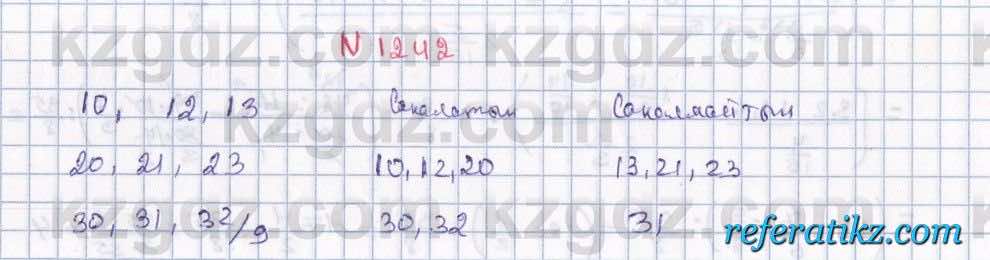 N 1242
10, 12, 13 Саналатын Саналмайтын
20, 21, 23 10, 12, 20 13, 21, 23
30, 31, 32/9 30, 32 31
kzgdz.com kzgdz.com
kzgdz.com
kzgdz.com kzgdz.com
referatikz.com